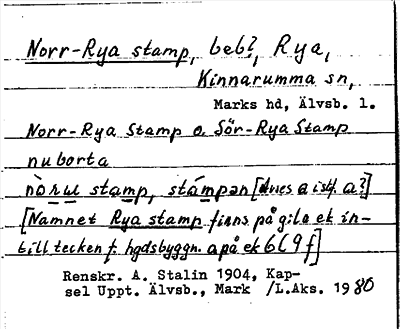 Norr-Rya stamp, beb?, Rya,
Kinnarumma sn,
Marks hd, Älvsb. l.
Norr-Rya Stamp o. Sör-Rya Stamp
nu borta
nòru stamp, stámpən [dues a istf. a?]
[Namnet Rya stamp finns på gila ek in-
till tecken f. hgdsbyggn. a på ek 6L9f]
Renskr. A. Stalin 1904, Kap-
sel Uppt. Älvsb., Mark /L.Aks. 1980